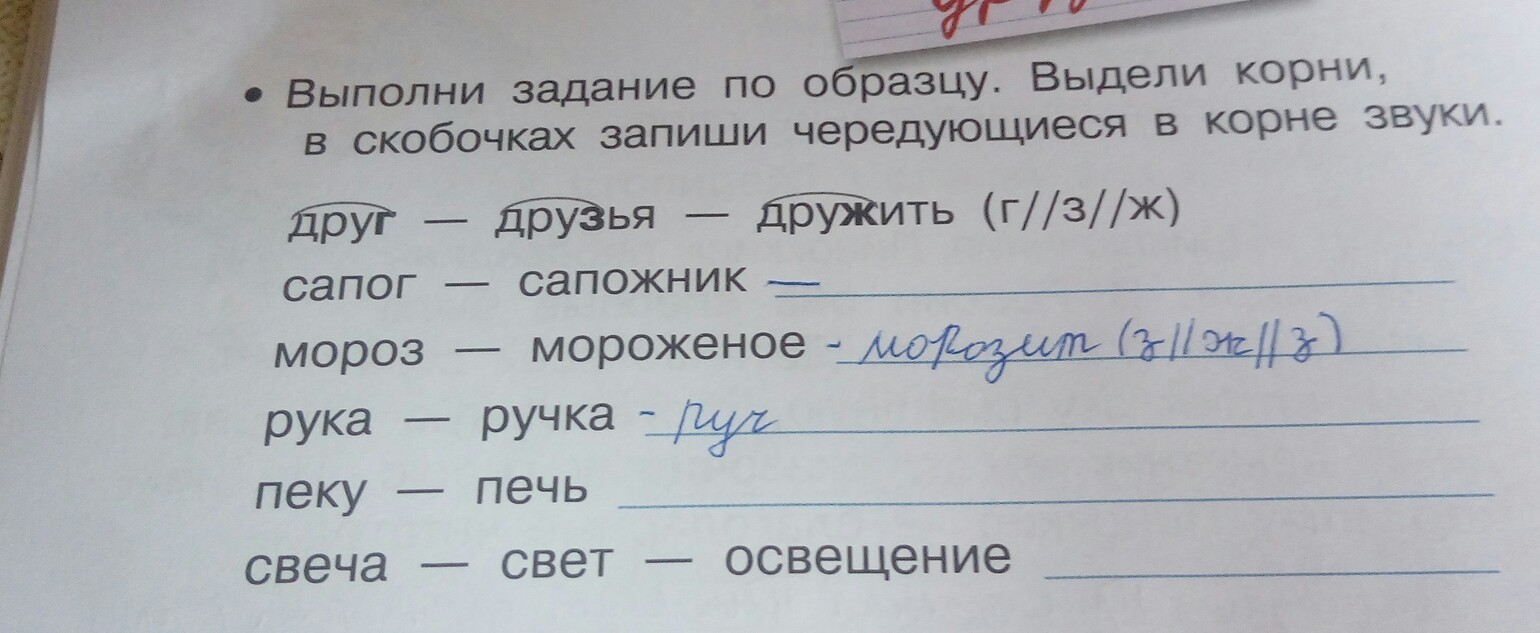 • Выполни задание по образцу. Выдели корни,
в скобочках запиши чередующиеся в корне звуки.
друг — друзья — дружить (г//з//ж)
сапог — сапожник —
мороз — мороженое - морозит (з//ж//з)
рука — ручка - руч
пеку — печь
свеча — свет — освещение